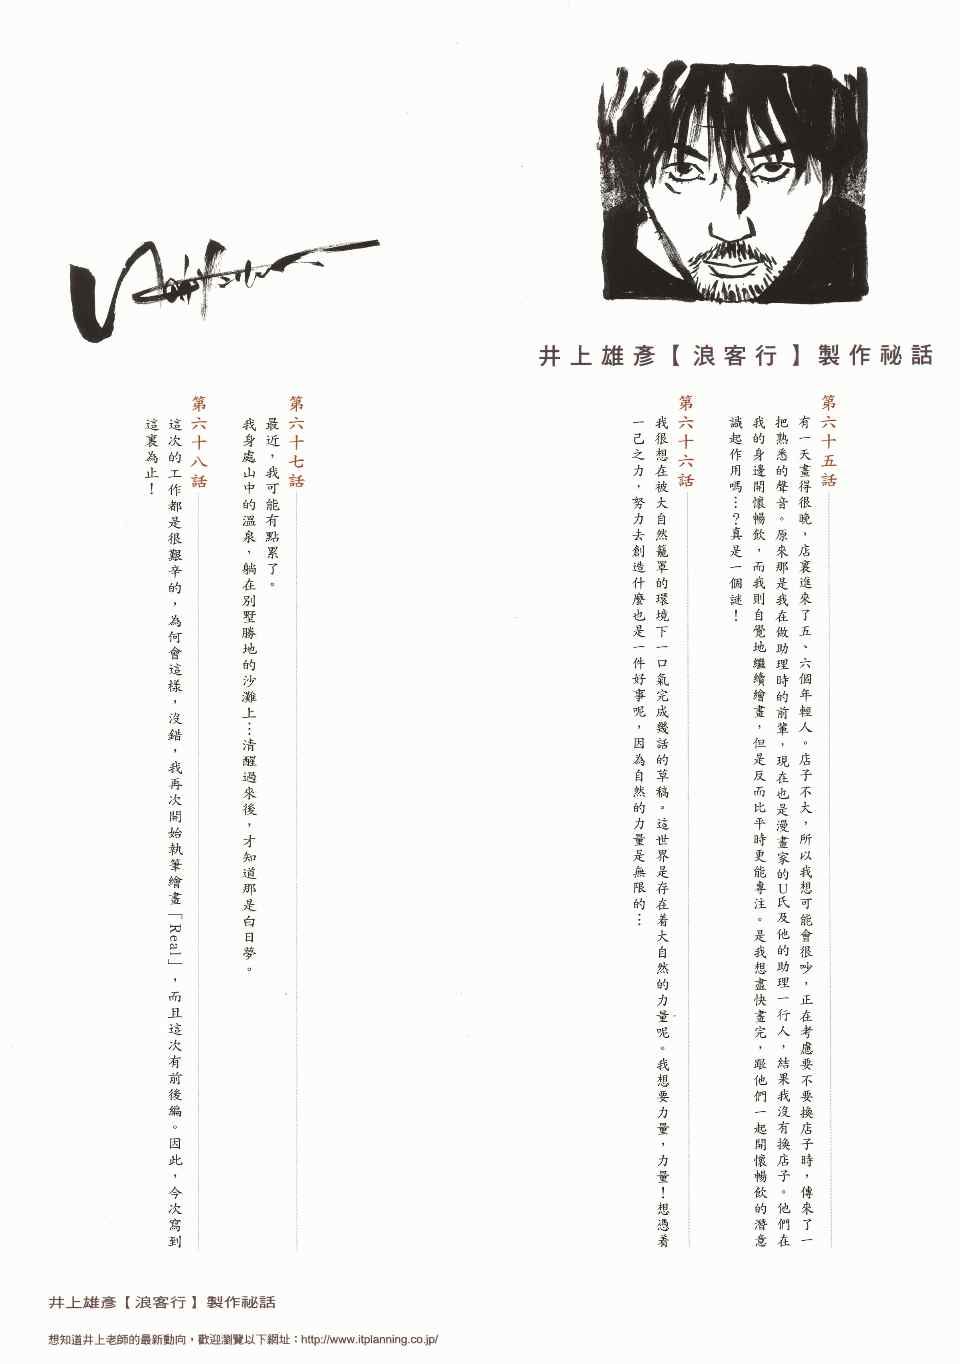 井上雄彥【浪客行】製作祕話
第六十五話
有一天畫得很晚，店裏進來了五、六個年輕人。店子不大，所以我想可能會很吵，正在考慮要不要換店子時，傳來了一
把熟悉的聲音。原來那是我在做助理時的前輩，現在也是漫畫家的U氏及他的助理一行人，結果我沒有換店子。他們在
我的身邊開懷暢飲，而我則自覺地繼續繪畫，但是反而比平時更能專注。是我想盡快畫完，跟他們一起開懷暢飲的潛意
識起作用嗎…？真是一個謎！
第六十六話
我很想在被大自然籠罩的環境下一口氣完成幾話的草稿。這世界是存在着大自然的力量呢。我想要力量，力量！想憑着
一己之力，努力去創造什麼也是一件好事呢，因為自然的力量是無限的…
第六十七話
最近，我可能有點累了。
我身處山中的溫泉，躺在別墅勝地的沙灘上…清醒過來後，才知道那是白日夢。
第六十八話
這次的工作都是很艱辛的，為何會這樣，沒錯，我再次開始執筆繪畫「Real」，而且這次有前後編。因此，今次寫到
這裏為止！
井上雄彥【浪客行】製作祕話
想知道井上老師的最新動向，歡迎瀏覽以下網址：http://www.itplanning.co.jp/